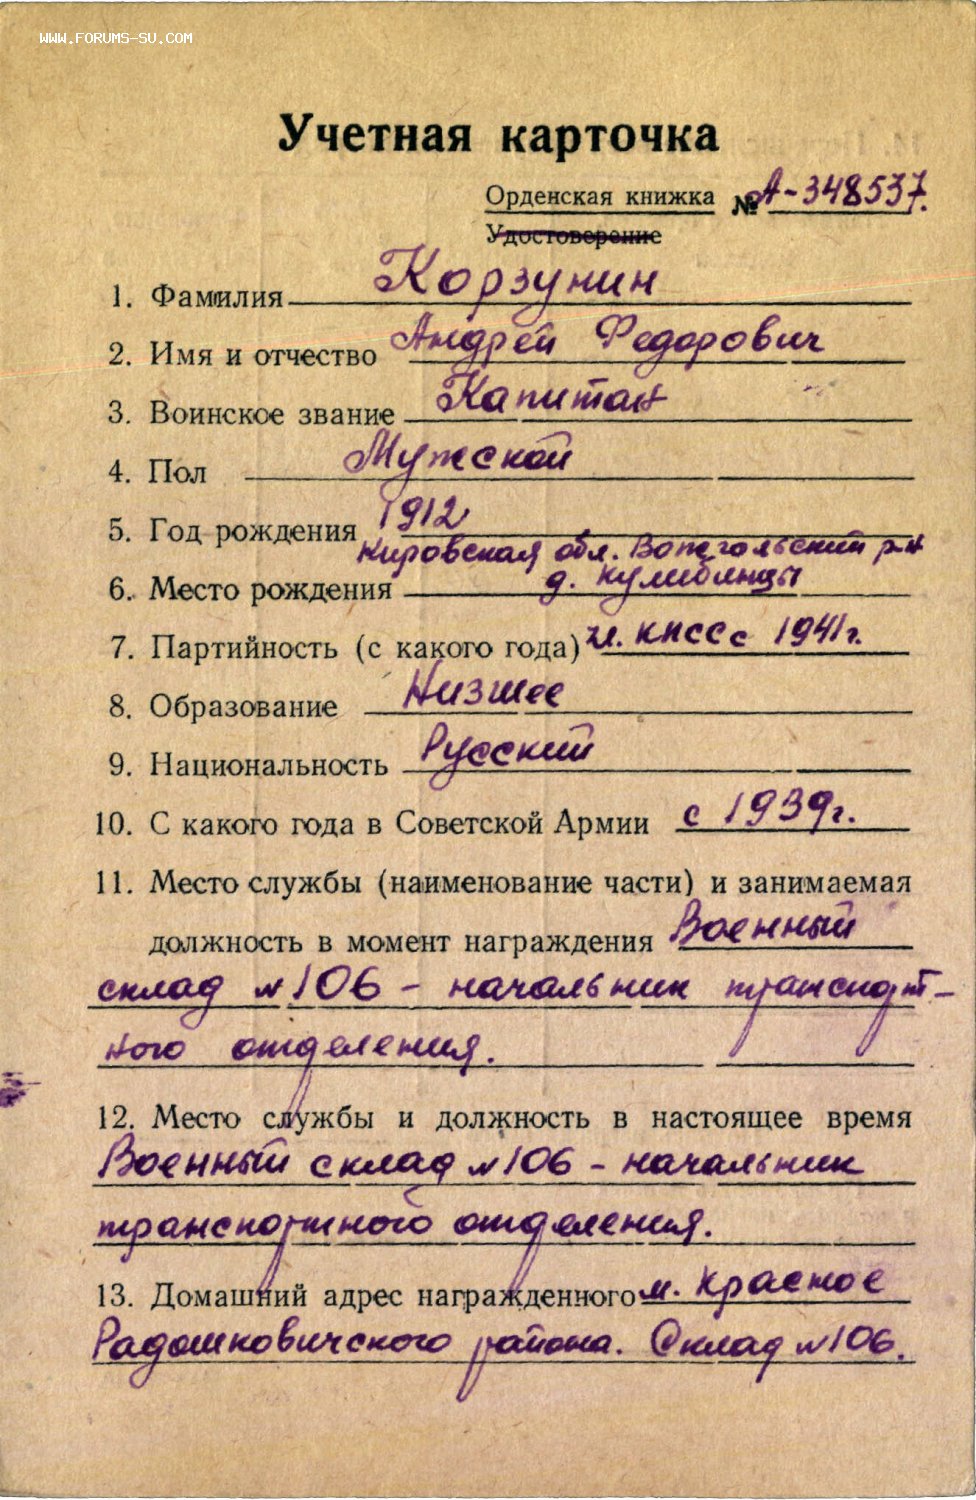 WWW.FORUMS-SU.COM
Учетная карточка
Орденская книжка № А-348537.
Удостоверение
1. Фамилия Корзунин
2. Имя и отчество Андрей Федорович
3. Воинское звание Капитан
4. Пол Мужской
5. Год рождения 1912
Кировская обл. Вожгальский р-н
6. Место рождения д. Кулибинцы
7. Партийность (с какого года) чл. КПСС с 1941г.
8. Образование Низшее
9. Национальность Русский
10. С какого года в Советской Армии с 1939г.
11. Место службы (наименование части) и занимаемая
должность в момент награждения Военный
склад №106 – начальник транспорт-
ного отделения.
12. Место службы и должность в настоящее время
Военный склад №106 – начальник
транспортного отделения.
13. Домашний адрес награжденного м. Красное
Радошковичского района. Склад №106.